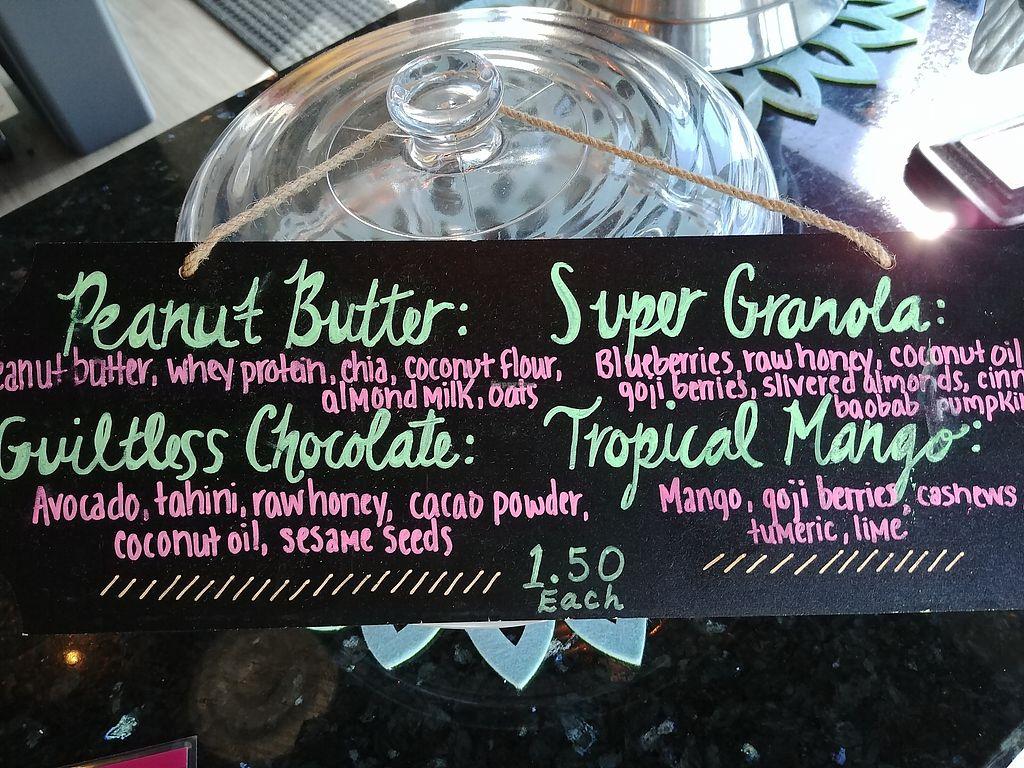 Peanut Butter:
eanut butter, whey protein, chia, coconut flour,
almond milk, oats
Super Granola:
Blueberries, raw honey, coconut oil
goji berries, slivered almonds, cinn
baobab, pumpkin
Guiltless Chocolate:
Avocado, tahini, raw honey, cacao powder,
coconut oil, sesame seeds
Tropical Mango:
Mango, goji berries, cashews
tumeric, lime
1.50
Each